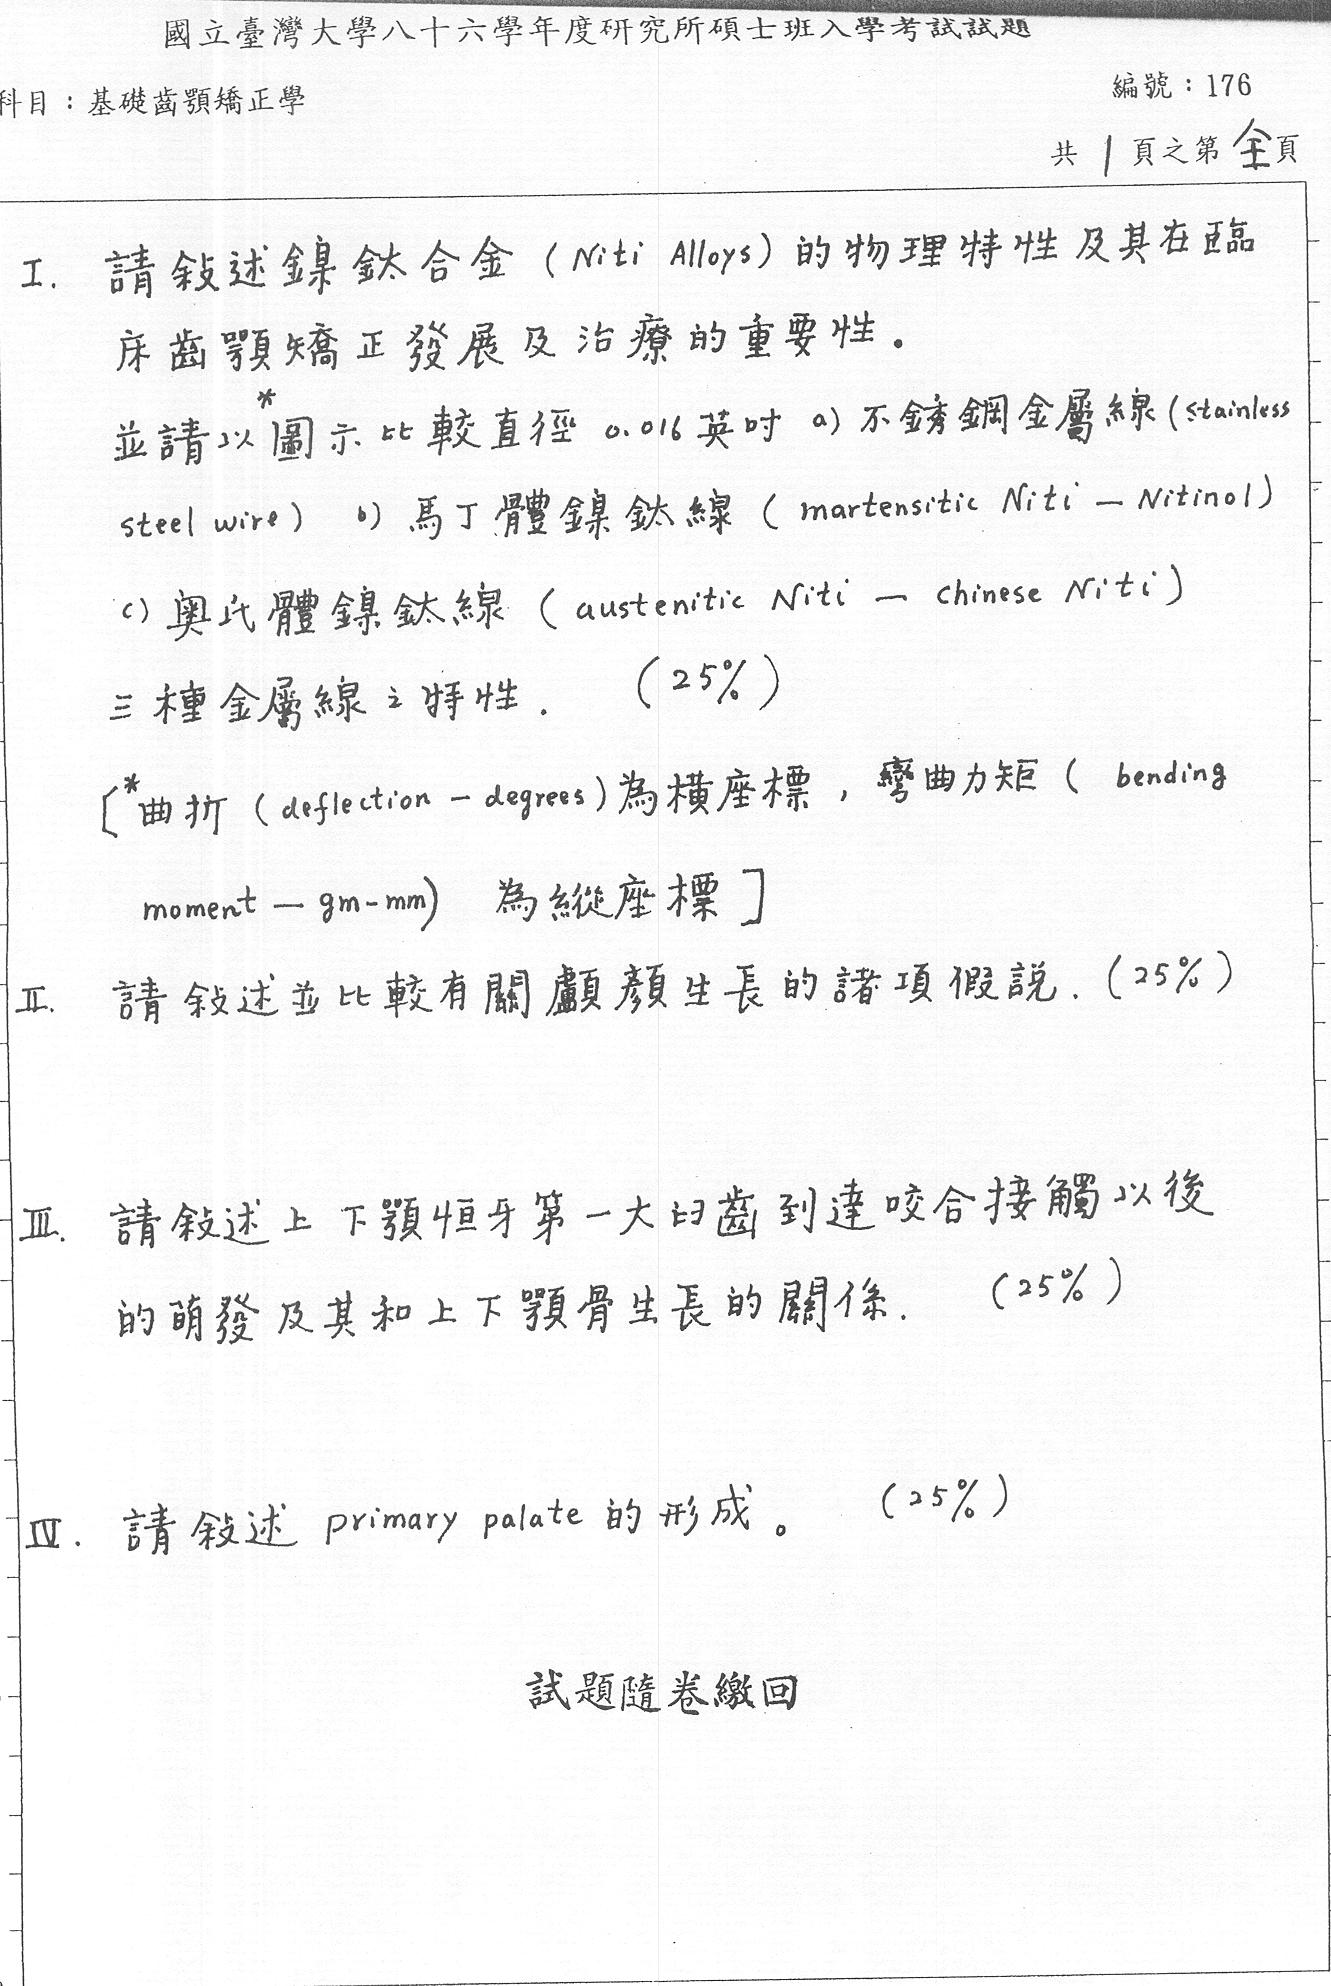 國立臺灣大學八十六學年度研究所碩士班入學考試試題
科目：基礎齒顎矯正學
編號：176
共 1 頁之第 全 頁
I. 請敍述鎳鈦合金（Niti Alloys）的物理特性及其在臨
床齒顎矯正發展及治療的重要性。
並請以*圖示比較直徑 0.016 英吋 a) 不銹鋼金屬線（stainless
steel wire） b) 馬丁體鎳鈦線（martensitic Niti — Nitinol）
c) 奧氏體鎳鈦線（austenitic Niti — chinese Niti）
三種金屬線之特性. （25%）
[*曲折（deflection - degrees）為橫座標，彎曲力矩（bending
moment — gm-mm） 為縱座標]
II. 請敍述並比較有關顱顏生長的諸項假說.（25%）
III. 請敍述上下顎恒牙第一大臼齒到達咬合接觸以後
的萌發及其和上下顎骨生長的關係. （25%）
IV. 請敍述 primary palate 的形成。 （25%）
試題隨卷繳回